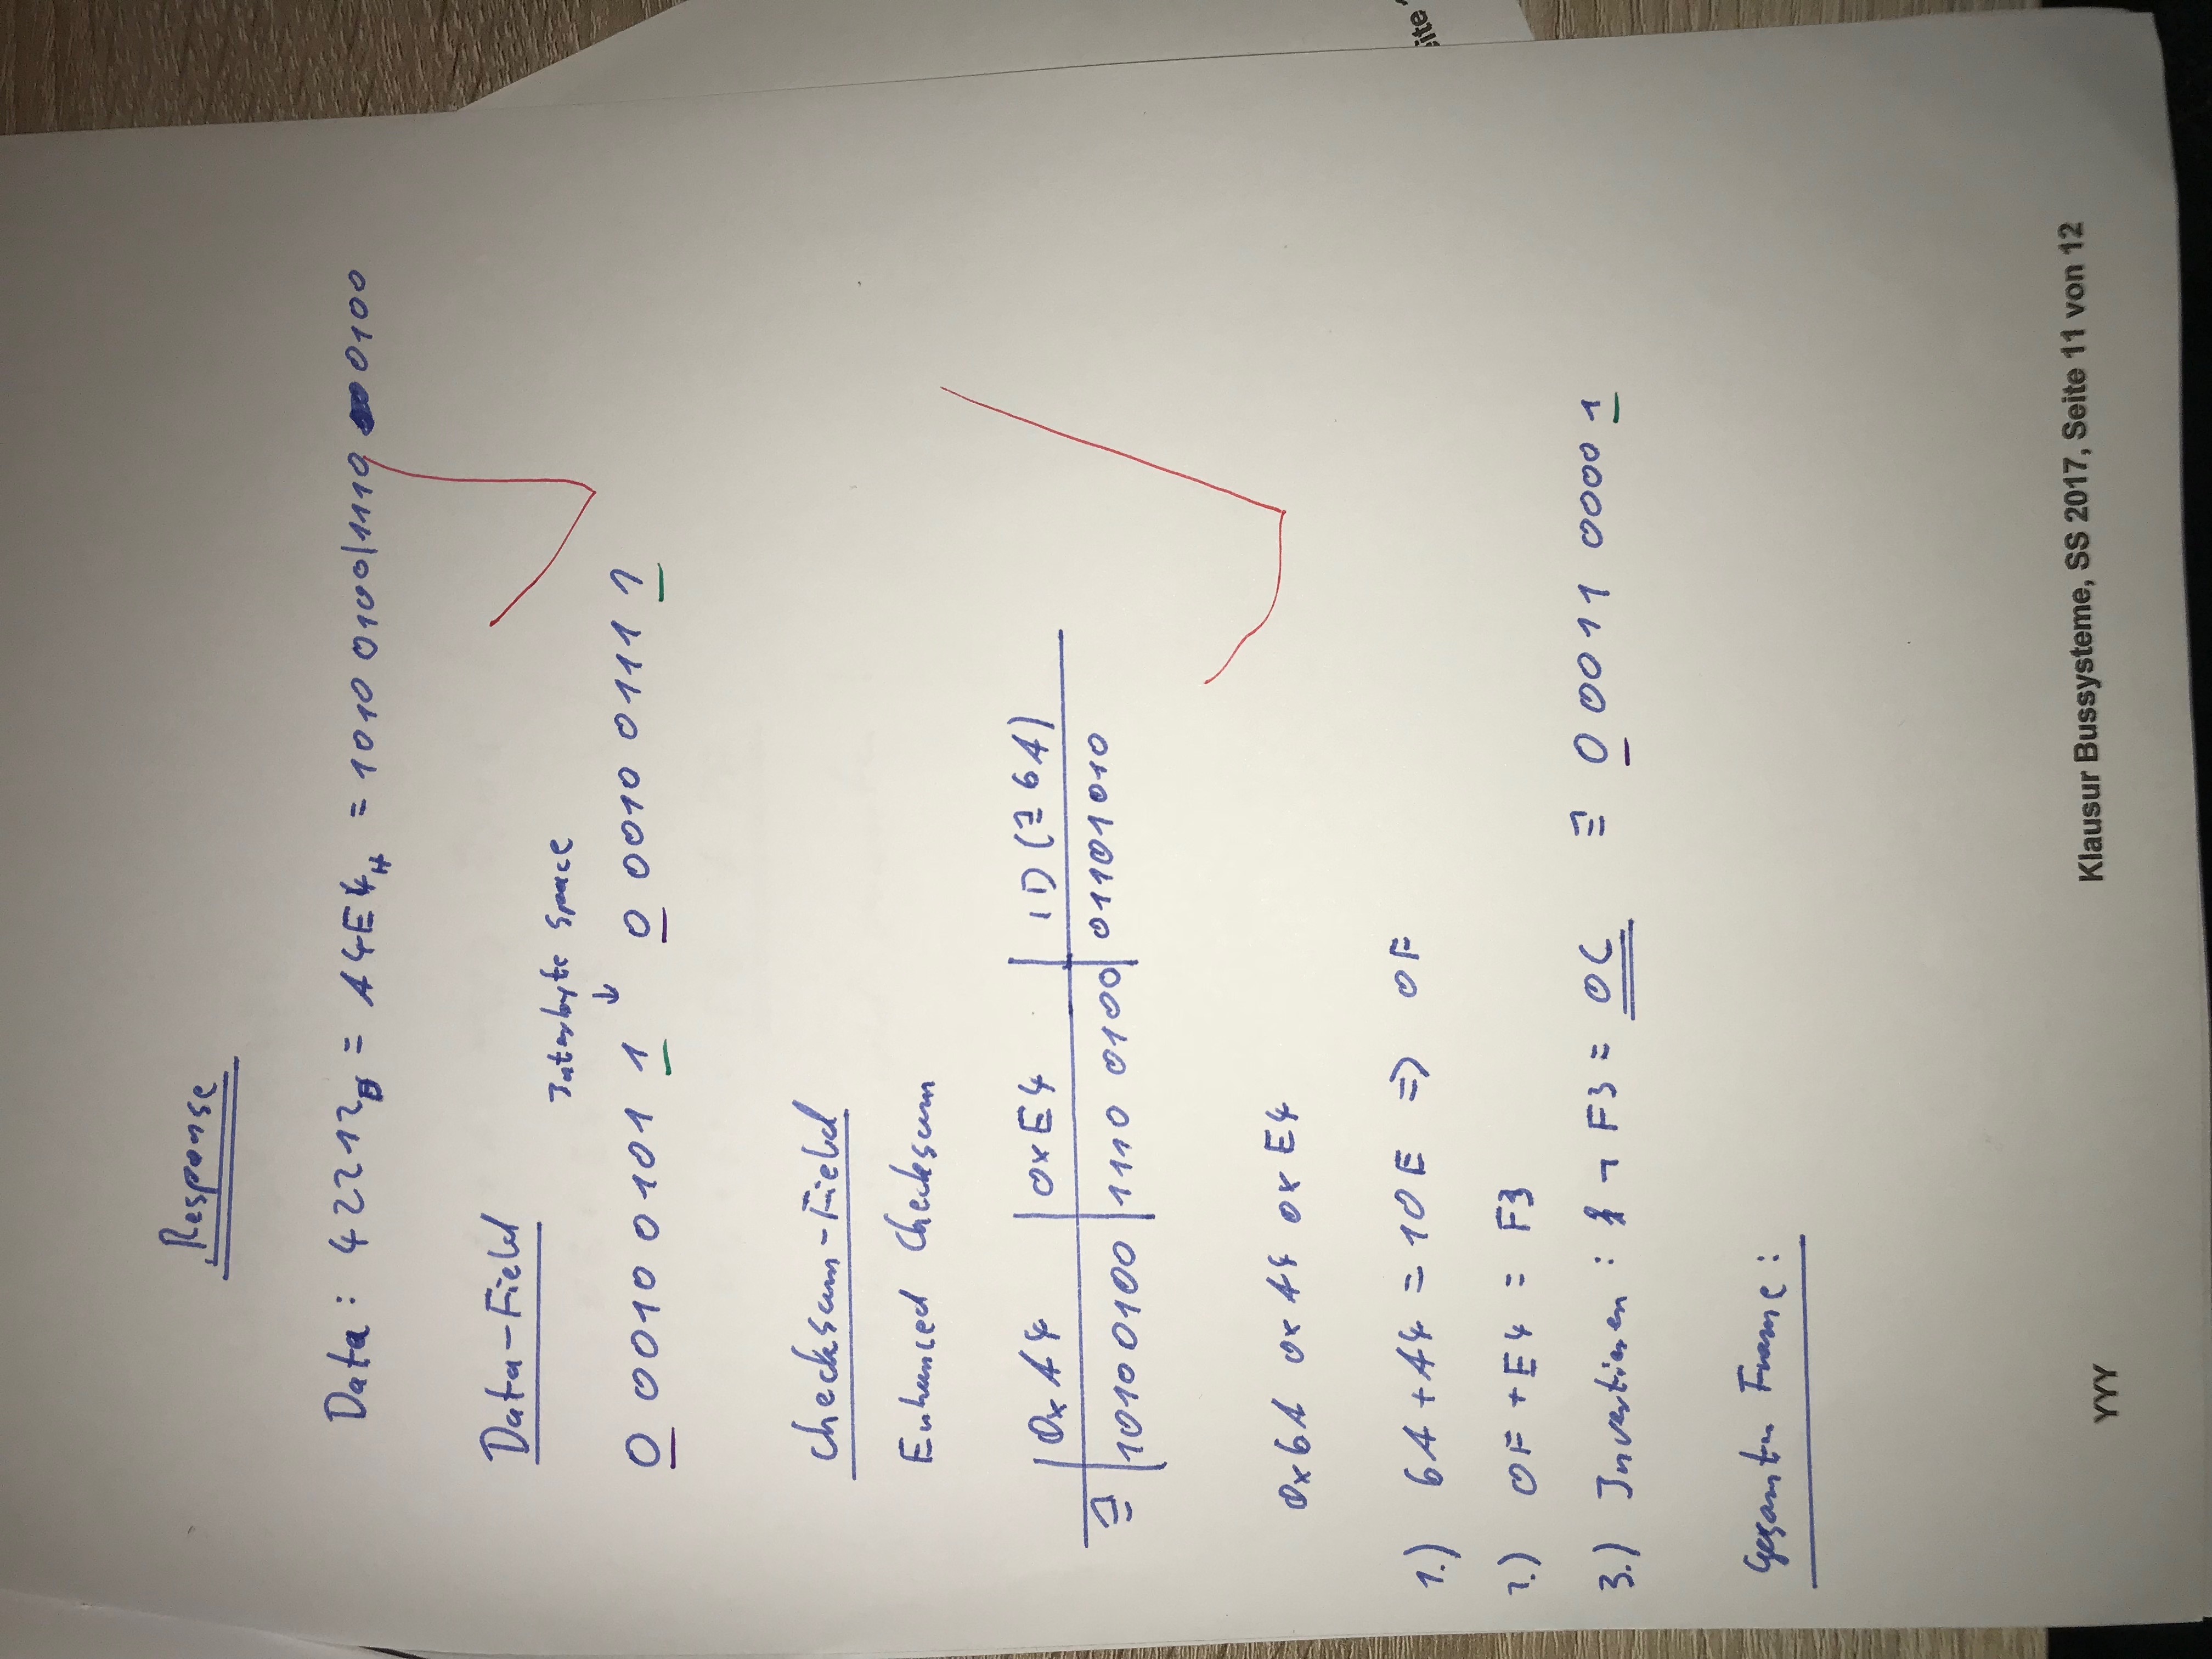 Response
Data: 42212D = A4E4H = 1010 0100|1110 0100
Data-Field
Interbyte Space
↓
0 0010 0101 1 0 0010 0111 1
Checksum-Field
Enhanced Checksum
0xA4 0xE4 ID (≙ 6A)
≙ 1010 0100 1110 0100 01101010
0x6A 0xA4 0xE4
1.) 6A + A4 = 10E => 0F
2.) 0F + E4 = F3
3.) Invertieren: ¬ F3 = 0C ≙ 0 0011 0000 1
Gesamter Frame:
eite
YYY
Klausur Bussysteme, SS 2017, Seite 11 von 12